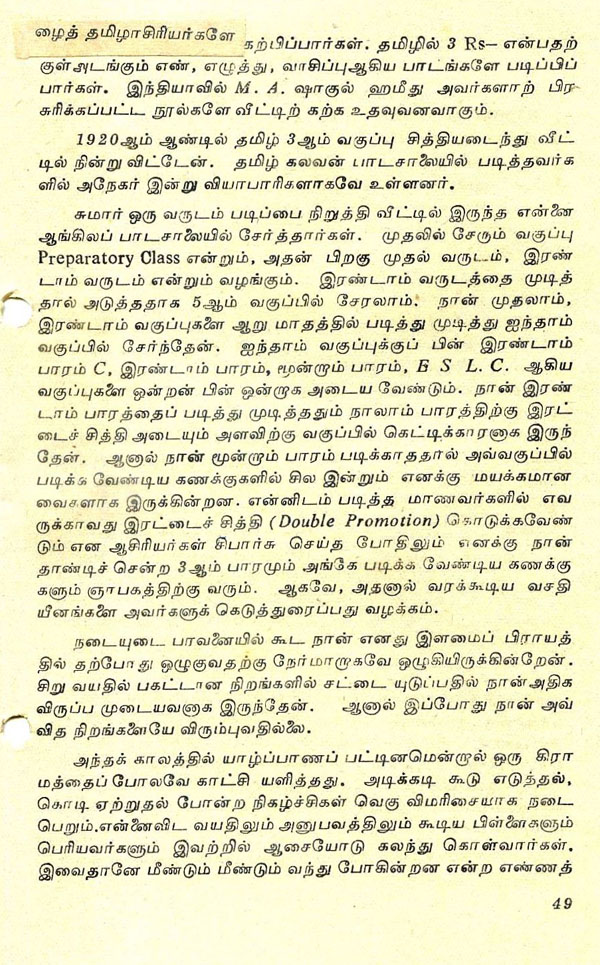 ழைத் தமிழாசிரியர்களே
கற்பிப்பார்கள். தமிழில் 3 Rs— என்பதற்
குள்அடங்கும் எண், எழுத்து, வாசிப்புஆகிய பாடங்களே படிப்பிப்
பார்கள். இந்தியாவில் M. A. ஷாகுல் ஹமீது அவர்களாற் பிர
சுரிக்கப்பட்ட நூல்களே வீட்டிற் கற்க உதவுவனவாகும்.
1920ஆம் ஆண்டில் தமிழ் 3ஆம் வகுப்பு சித்தியடைந்து வீட்
டில் நின்று விட்டேன். தமிழ் கலவன் பாடசாலையில் படித்தவர்க
ளில் அநேகர் இன்று வியாபாரிகளாகவே உள்ளனர்.
சுமார் ஒரு வருடம் படிப்பை நிறுத்தி வீட்டில் இருந்த என்னை
ஆங்கிலப் பாடசாலையில் சேர்த்தார்கள். முதலில் சேரும் வகுப்பு
Preparatory Class என்றும், அதன் பிறகு முதல் வருடம், இரண்
டாம் வருடம் என்றும் வழங்கும். இரண்டாம் வருடத்தை முடித்
தால் அடுத்ததாக 5ஆம் வகுப்பில் சேரலாம். நான் முதலாம்,
இரண்டாம் வகுப்புகளை ஆறு மாதத்தில் படித்து முடித்து ஐந்தாம்
வகுப்பில் சேர்ந்தேன். ஐந்தாம் வகுப்புக்குப் பின் இரண்டாம்
பாரம் C, இரண்டாம் பாரம், மூன்றாம் பாரம், E S L. C. ஆகிய
வகுப்புகளை ஒன்றன் பின் ஒன்றாக அடைய வேண்டும். நான் இரண்
டாம் பாரத்தைப் படித்து முடித்ததும் நாலாம் பாரத்திற்கு இரட்
டைச் சித்தி அடையும் அளவிற்கு வகுப்பில் கெட்டிக்காரனாக இருந்
தேன். ஆனால் நான் மூன்றாம் பாரம் படிக்காததால் அவ்வகுப்பில்
படிக்க வேண்டிய கணக்குகளில் சில இன்றும் எனக்கு மயக்கமான
வைகளாக இருக்கின்றன. என்னிடம் படித்த மாணவர்களில் எவ
ருக்காவது இரட்டைச் சித்தி (Double Promotion) கொடுக்கவேண்
டும் என ஆசிரியர்கள் சிபார்சு செய்த போதிலும் எனக்கு நான்
தாண்டிச் சென்ற 3ஆம் பாரமும் அங்கே படிக்க வேண்டிய கணக்கு
களும் ஞாபகத்திற்கு வரும். ஆகவே, அதனால் வரக்கூடிய வசதி
யீனங்களை அவர்களுக் கெடுத்துரைப்பது வழக்கம்.
நடையுடை பாவனையில் கூட நான் எனது இளமைப் பிராயத்
தில் தற்போது ஒழுகுவதற்கு நேர்மாறாகவே ஒழுகியிருக்கின்றேன்.
சிறு வயதில் பகட்டான நிறங்களில் சட்டை யுடுப்பதில் நான்அதிக
விருப்ப முடையவனாக இருந்தேன். ஆனால் இப்போது நான் அவ்
வித நிறங்களையே விரும்புவதில்லை.
அந்தக் காலத்தில் யாழ்ப்பாணப் பட்டினமென்றால் ஒரு கிரா
மத்தைப் போலவே காட்சி யளித்தது. அடிக்கடி கூடு எடுத்தல்,
கொடி ஏற்றுதல் போன்ற நிகழ்ச்சிகள் வெகு விமரிசையாக நடை
பெறும்.என்னைவிட வயதிலும் அனுபவத்திலும் கூடிய பிள்ளைகளும்
பெரியவர்களும் இவற்றில் ஆசையோடு கலந்து கொள்வார்கள்.
இவைதானே மீண்டும் மீண்டும் வந்து போகின்றன என்ற எண்ணத்
49